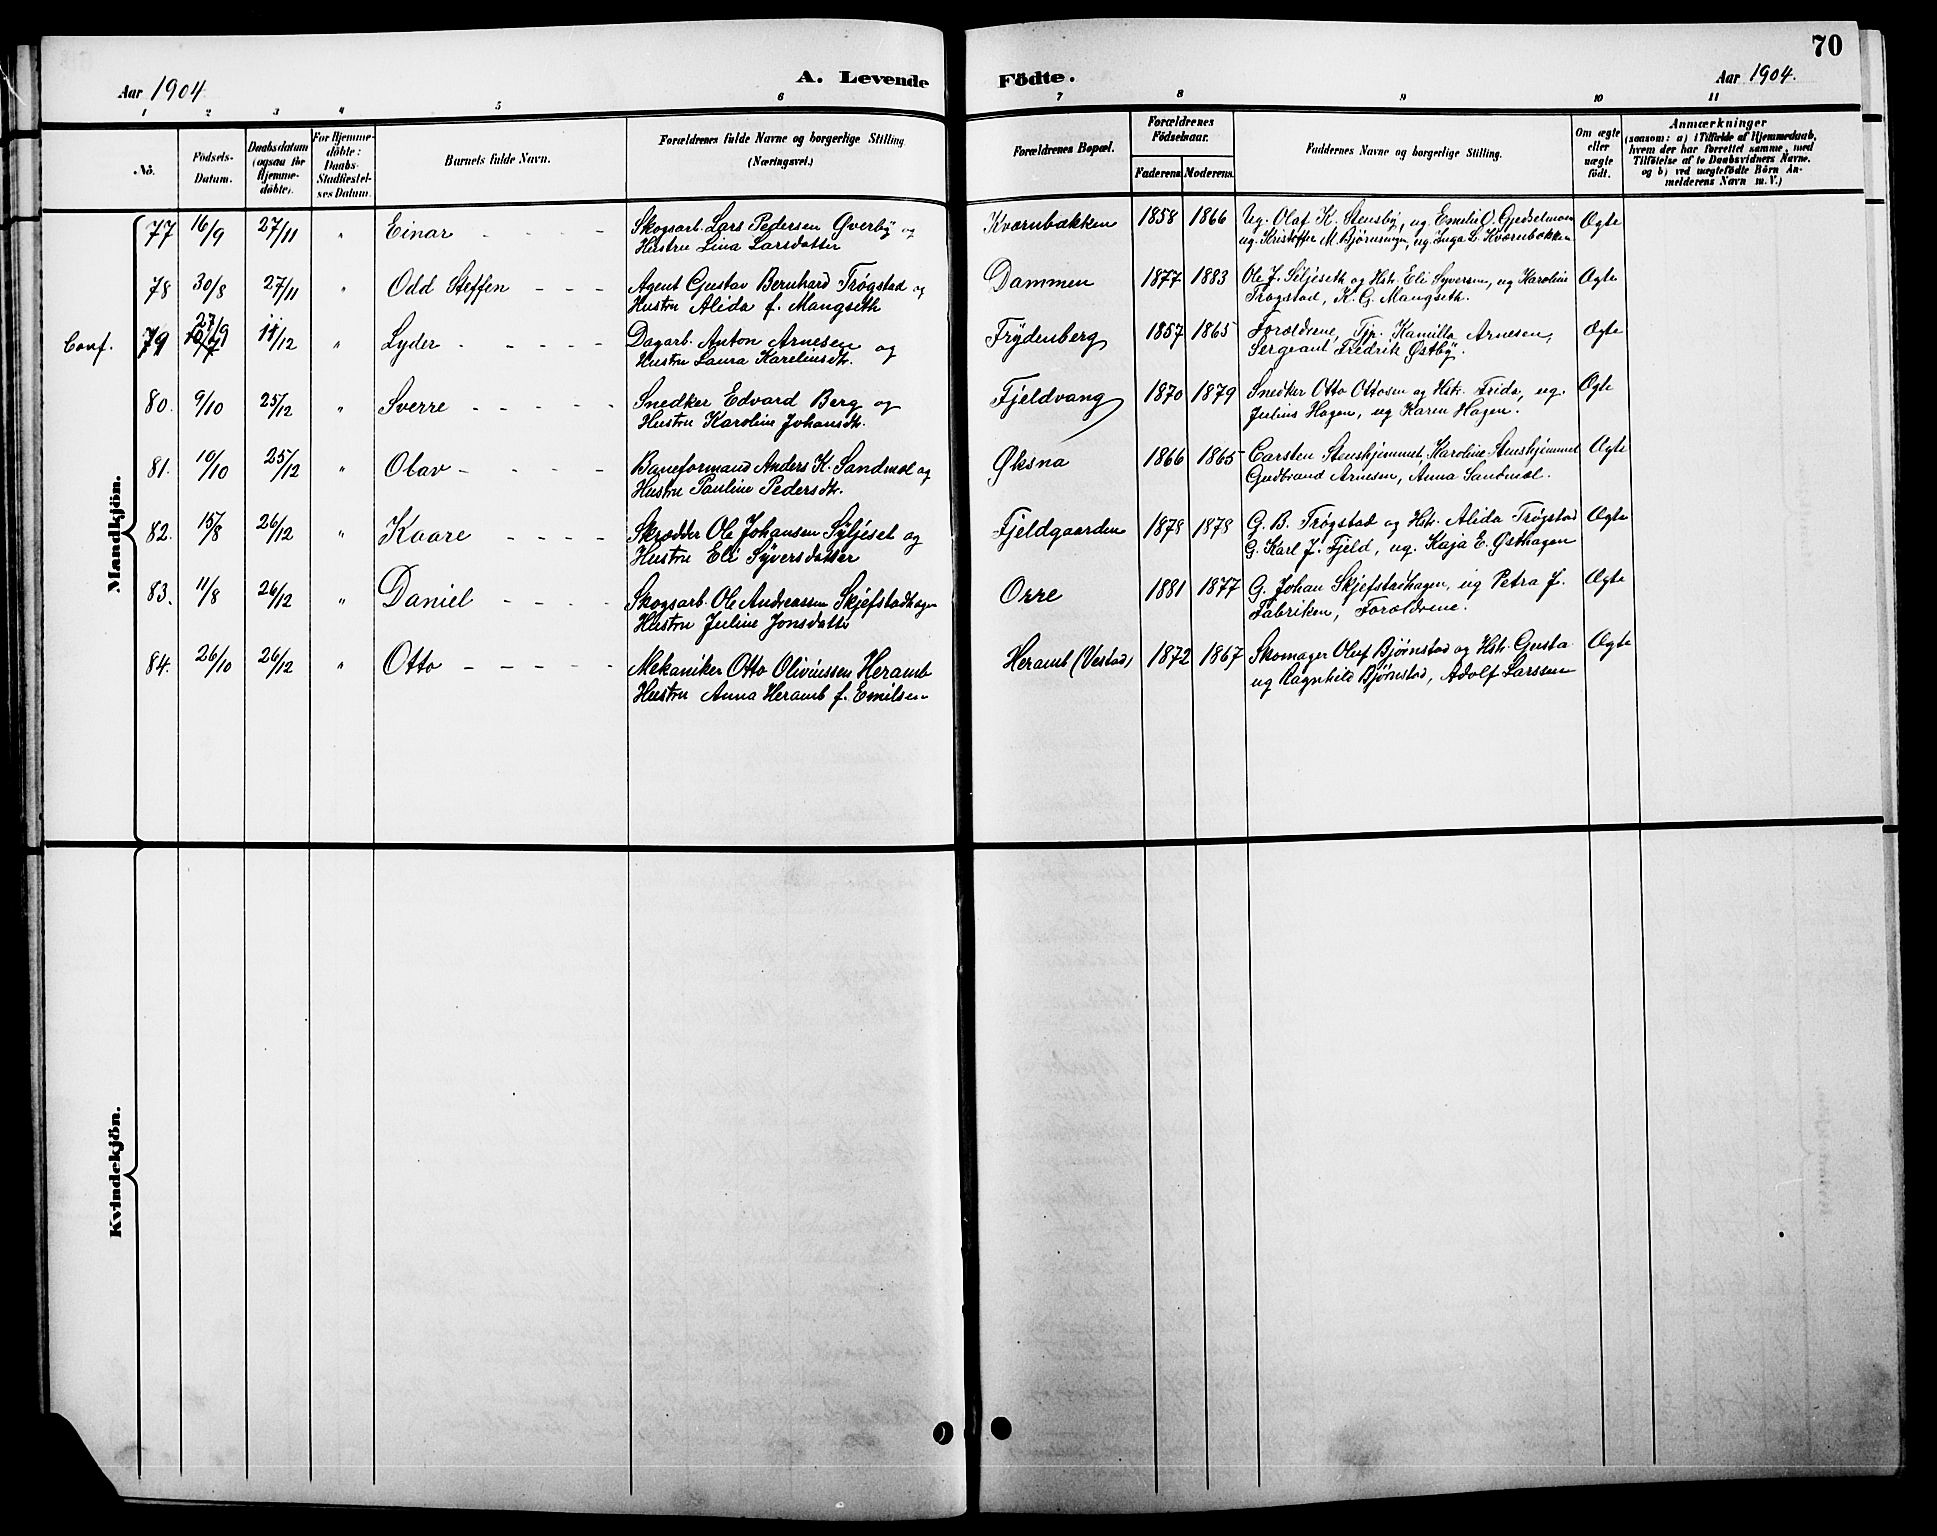 70
Aar 1904
A. Levende Födte.
Aar 1904.
1 2 3 4 5 6 7 8 9 10 11
No.
Födsels-Datum.
Daabsdatum (ogsaa for Hjemme-döbte).
For Hjemme-döbte: Daabs-Stadfæstel-ses Datum.
Barnets fulde Navn.
Forældrenes fulde Navne og borgerlige Stilling (Næringsvei.)
Forældrenes Bopæl.
Forældrenes Födselsaar.
Faderens
Moderens.
Faddernes Navne og borgerlige Stilling.
Om ægte eller uægte födt.
Anmærkninger
(saasom: a) i Tilfælde af Hjemmedaab,
hvem der har forrettet samme, med
Tilföielse af to Daabsvidners Navne.
og b) ved uægtefödte Börn An-
melderens Navn m. V.)
Mandkjön.
77 16/9 27/11 " Einar - - - - Skogsarb. Lars Pedersen Øverby og Kværnbakken 1858 1866 Ug. Olaf K. Stensby, ug. Emilie O. Ægte
Hustru Lina Larsdatter ug. Kristoffer M. Bjørnsingen, ug. Inga L. Kværnbakken
78 30/8 27/11 " Odd Steffen - - - Agent Gustav Bernhard Trøgstad og Dammen 1877 1883 Ole J. Siljeseth og Hstr. Eli Syversen, ug Karoline Ægte
Hustru Alida f. Mangseth Trøgstad, K. G. Mangseth.
Conf. 79 27/9 11/12 " Lyder - - - - - Dagarb. Anton Arnesen og Frydenberg 1857 1865 Forældrene, Tjp. Kamilla Arnesen, Ægte
Hustru Laura Kareliusdtr. Sergeant Fredrik Østby.
80. 9/10 25/12 " Sverre - - - - - Snedker Edvard Berg og Fjeldvang 1870 1879 Snedker Otto Ottosen og Hstr. Frida, ug. Ægte
Hustru Karoline Johansdtr. Julius Hagen, ug Karen Hagen.
81. 10/10 25/12 " Olav - - - - Baneformand Anders K. Sandmol og Øksna 1866 1865 Carsten Stenshjemmet, Karoline Stenshjemmet Ægte
Hustru Pauline Pedersdtr. Gudbrand Arnesen, Anna Sandmol.
82. 15/8 26/12 " Kaare - - - - Skrædder Ole Johansen Syljeset og Fjeldgaarden 1878 1878 G. B. Trøgstad og Hstr. Alida Trøgstad Ægte
Hustru Eli Syversdatter G. Karl J. Fjeld, ug. Kaja E. Østhagen
83. 11/8 26/12 " Daniel - - - - Skogsarb. Ole Andreassen Skjefstadhagen Orre 1881 1877 G. Johan Skjefstadhagen, ug Petra J. Ægte
Hustru Juline Jonsdatter Fabriken, Forældrene.
84. 26/10 26/12 " Otto - - - - - Mekaniker Otto Oliviussen Heramb Heramb (Vestad) 1872 1867 Skomager Oluf Bjørnstad og Hstr. Gusta Ægte
Hustru Anna Heramb f. Emilsen ug Ragnhild Bjørnstad, Adolf Larssen
Kvindekjön.